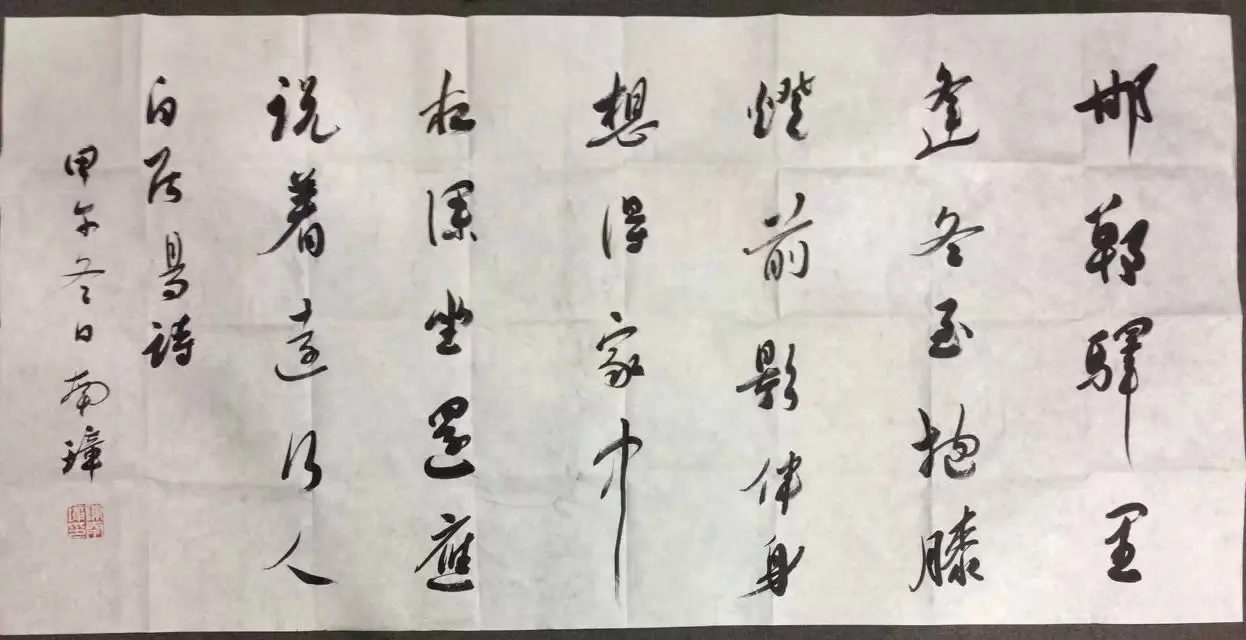 邯鄲驛里
逢冬至抱膝
燈前影伴身
想得家中
夜深坐還應
説着遠行人
白居易詩
甲午冬日南璋